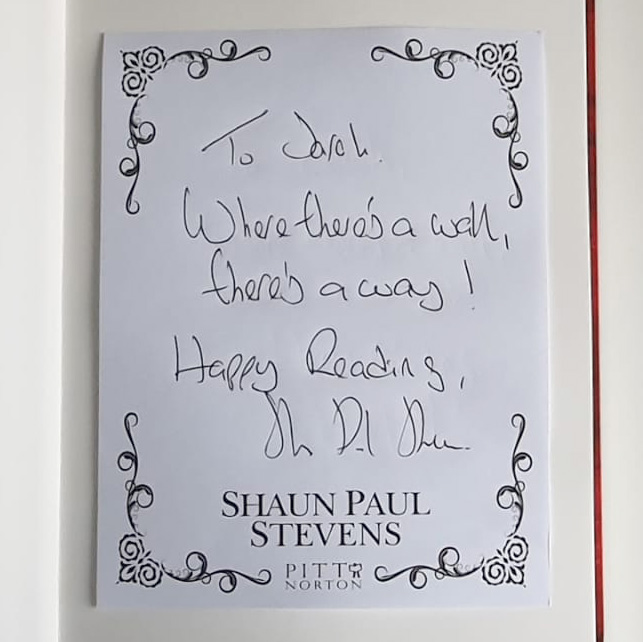 To Sarah.
Where there's a wall,
there's a way!
Happy Reading,
SHAUN PAUL
STEVENS
PITT
NORTON